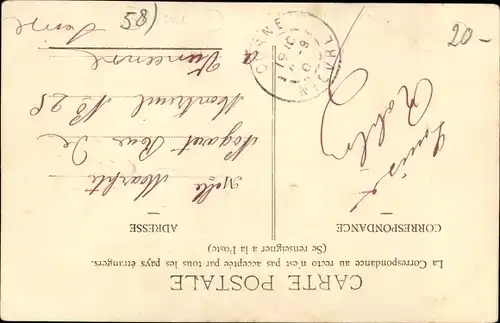 CARTE POSTALE
La Correspondance au recto n'est pas acceptée par tous les pays étrangers.
(Se renseigner à la Poste)
CORRESPONDANCE
ADRESSE
Louise
Melle Marthe
Nogaret Rue de
Montreuil No 28
a Vincennes
Seine
58)
20-